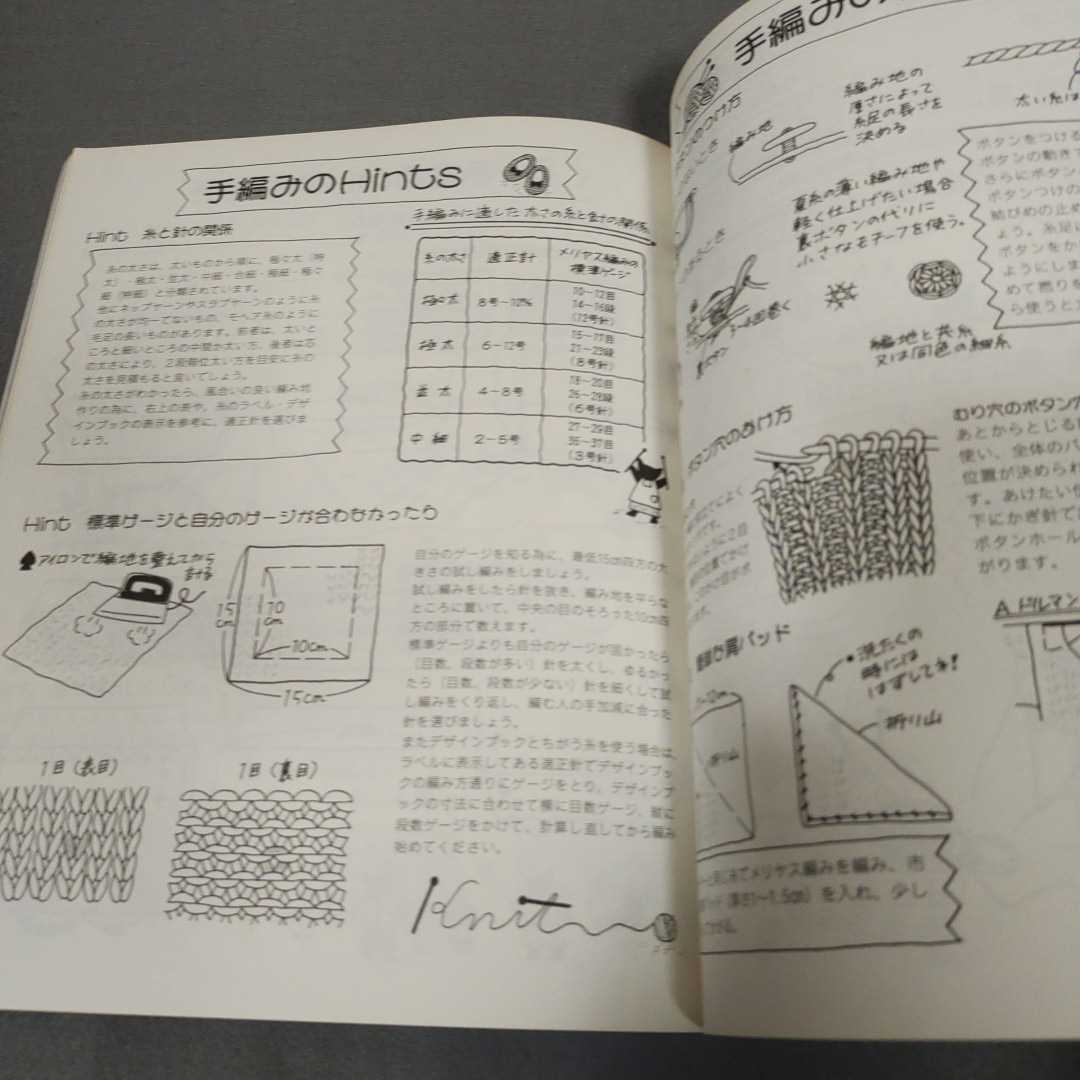 手編みのHints
Hint 糸と針の関係
糸の太さは、太いものから順に、極々太（特
太）・極太・並太・中細・合細・極細・極々
細（特細）と分類されています。
他にネップヤーンやスラブヤーンのように糸
の太さが均一でないもの、モヘア糸のように
毛足の長いものがあります。前者は、太いと
ころと細いところの中間か太い方、後者は芯
の太さにより、2段階位太い方を目安に糸の
太さを見積もると良いでしょう。
糸の太さがわかったら、風合いの良い編み地
作りの為に、右上の表や、糸のラベル・デザ
インブックの表示を参考に、適正針を選びま
しょう。
手編みに適した太さの糸と針の関係
糸の太さ 適正針 メリヤス編みの
標準ゲージ
極々太 8号〜10㍉ 10〜12目
14〜16段
(12号針)
極太 6〜12号 15〜17目
21〜23段
(8号針)
並太 4〜8号 18〜20目
26〜28段
(6号針)
中細 2〜5号 27〜29目
35〜37目
(3号針)
Hint 標準ゲージと自分のゲージが合わなかったら
アイロンで編地を整えてから
計る
15
cm
10
cm
10cm
15cm
1目(表目)
1目(裏目)
自分のゲージを知る為に、最低15cm四方の大
きさの試し編みをしましょう。
試し編みをしたら針を抜き、編み地を平らな
ところに置いて、中央の目のそろった10cm四
方の部分で数えます。
標準ゲージよりも自分のゲージが固かったら
（目数、段数が多い）針を太くし、ゆるかっ
たら（目数、段数が少ない）針を細くして試
し編みをくり返し、編む人の手加減に合った
針を選びましょう。
またデザインブックとちがう糸を使う場合は、
ラベルに表示してある適正針でデザインブッ
クの編み方通りにゲージをとり、デザインブ
ックの寸法に合わせて横に目数ゲージ、縦に
段数ゲージをかけて、計算し直してから編み
始めてください。
Knit
手編みの
つけ方
編み地
編み地の
厚さによって
糸足の長さを
決める
太い糸は
夏糸の薄い編み地や
軽く仕上げたい場合
裏ボタンの代りに
小さなモチーフを使う。
3〜4回巻く
編地と共糸
又は同色の細糸
ボタンをつける
ボタンの動き
さらにボタン
ボタンつけの
結びめの止め
ょう。糸足
ボタンをか
ようにしま
めて撚りを
ら使うと
ボタン穴のあけ方
むり穴のボタン穴
あとからとじる
使い、全体のバ
位置が決められ
す。あけたい位
下にかぎ針で
ボタンホール
がります。
肩パッド
折り山
洗たくの
時には
はずしてネ!
折り山
A ドルマン
てメリヤス編みを編み、市
(厚さ1〜1.5cm)を入れ、少し